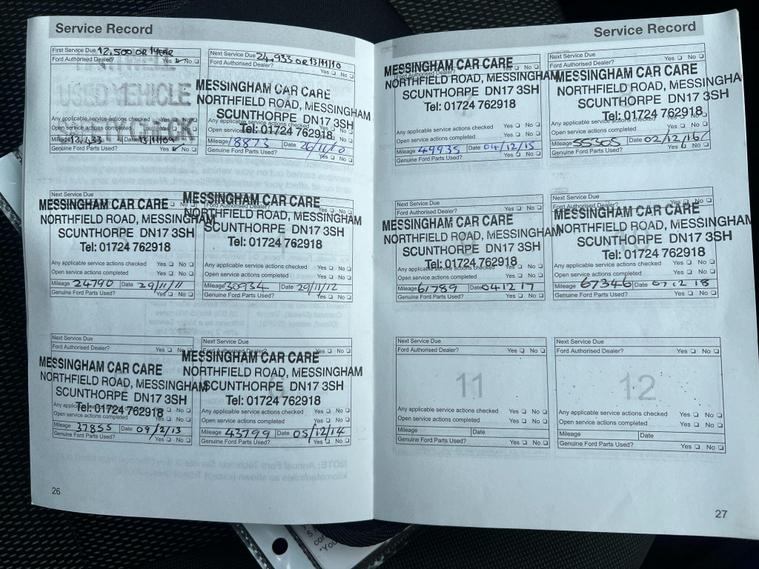 Service Record
First Service Due 12,500 OR 1 YEAR
Ford Authorised Dealer? Yes No
USED VEHICLE
CHECK
Any applicable service actions checked
Open service actions completed
Mileage 12,433 Date 13/11/09
Genuine Ford Parts Used? Yes No
Next Service Due 24,933 OR 13/11/10
Ford Authorised Dealer? Yes No
MESSINGHAM CAR CARE
NORTHFIELD ROAD, MESSINGHAM
SCUNTHORPE DN17 3SH
Tel: 01724 762918
Open service actions completed
Mileage 18873 Date 26/11/10
Genuine Ford Parts Used? Yes No
Next Service Due
MESSINGHAM CAR CARE
NORTHFIELD ROAD, MESSINGHAM
SCUNTHORPE DN17 3SH
Tel: 01724 762918
Any applicable service actions checked Yes No
Open service actions completed Yes No
Mileage 24790 Date 29/11/11
Genuine Ford Parts Used? Yes No
MESSINGHAM CAR CARE
NORTHFIELD ROAD, MESSINGHAM
SCUNTHORPE DN17 3SH
Tel: 01724 762918
Any applicable service actions checked Yes No
Open service actions completed Yes No
Mileage 30934 Date 29/11/12
Genuine Ford Parts Used? Yes No
Next Service Due
MESSINGHAM CAR CARE
NORTHFIELD ROAD, MESSINGHAM
SCUNTHORPE DN17 3SH
Tel: 01724 762918
Open service actions completed
Mileage 37855 Date 09/12/13
Genuine Ford Parts Used? Yes No
Next Service Due
MESSINGHAM CAR CARE
NORTHFIELD ROAD, MESSINGHAM
SCUNTHORPE DN17 3SH
Tel: 01724 762918
Open service actions completed Yes No
Mileage 43799 Date 05/12/14
Genuine Ford Parts Used? Yes No
26
Service Record
MESSINGHAM CAR CARE
NORTHFIELD ROAD, MESSINGHAM
SCUNTHORPE DN17 3SH
Tel: 01724 762918
Open service actions completed Yes No
Mileage 49935 Date 04/12/15
Genuine Ford Parts Used? Yes No
Next Service Due
MESSINGHAM CAR CARE
NORTHFIELD ROAD, MESSINGHAM
SCUNTHORPE DN17 3SH
Tel: 01724 762918
Open service actions completed Yes No
Mileage 55305 Date 02/12/16
Genuine Ford Parts Used? Yes No
Next Service Due
MESSINGHAM CAR CARE
NORTHFIELD ROAD, MESSINGHAM
SCUNTHORPE DN17 3SH
Tel: 01724 762918
Open service actions completed Yes No
Mileage 61789 Date 041217
Genuine Ford Parts Used? Yes No
Next Service Due
MESSINGHAM CAR CARE
NORTHFIELD ROAD, MESSINGHAM
SCUNTHORPE DN17 3SH
Tel: 01724 762918
Open service actions completed Yes No
Mileage 67346 Date 07 12 18
Genuine Ford Parts Used? Yes No
Next Service Due
Ford Authorised Dealer? Yes No
11
Any applicable service actions checked Yes No
Open service actions completed Yes No
Mileage Date
Genuine Ford Parts Used? Yes No
Next Service Due
Ford Authorised Dealer? Yes No
12
Any applicable service actions checked Yes No
Open service actions completed Yes No
Mileage Date
Genuine Ford Parts Used? Yes No
27